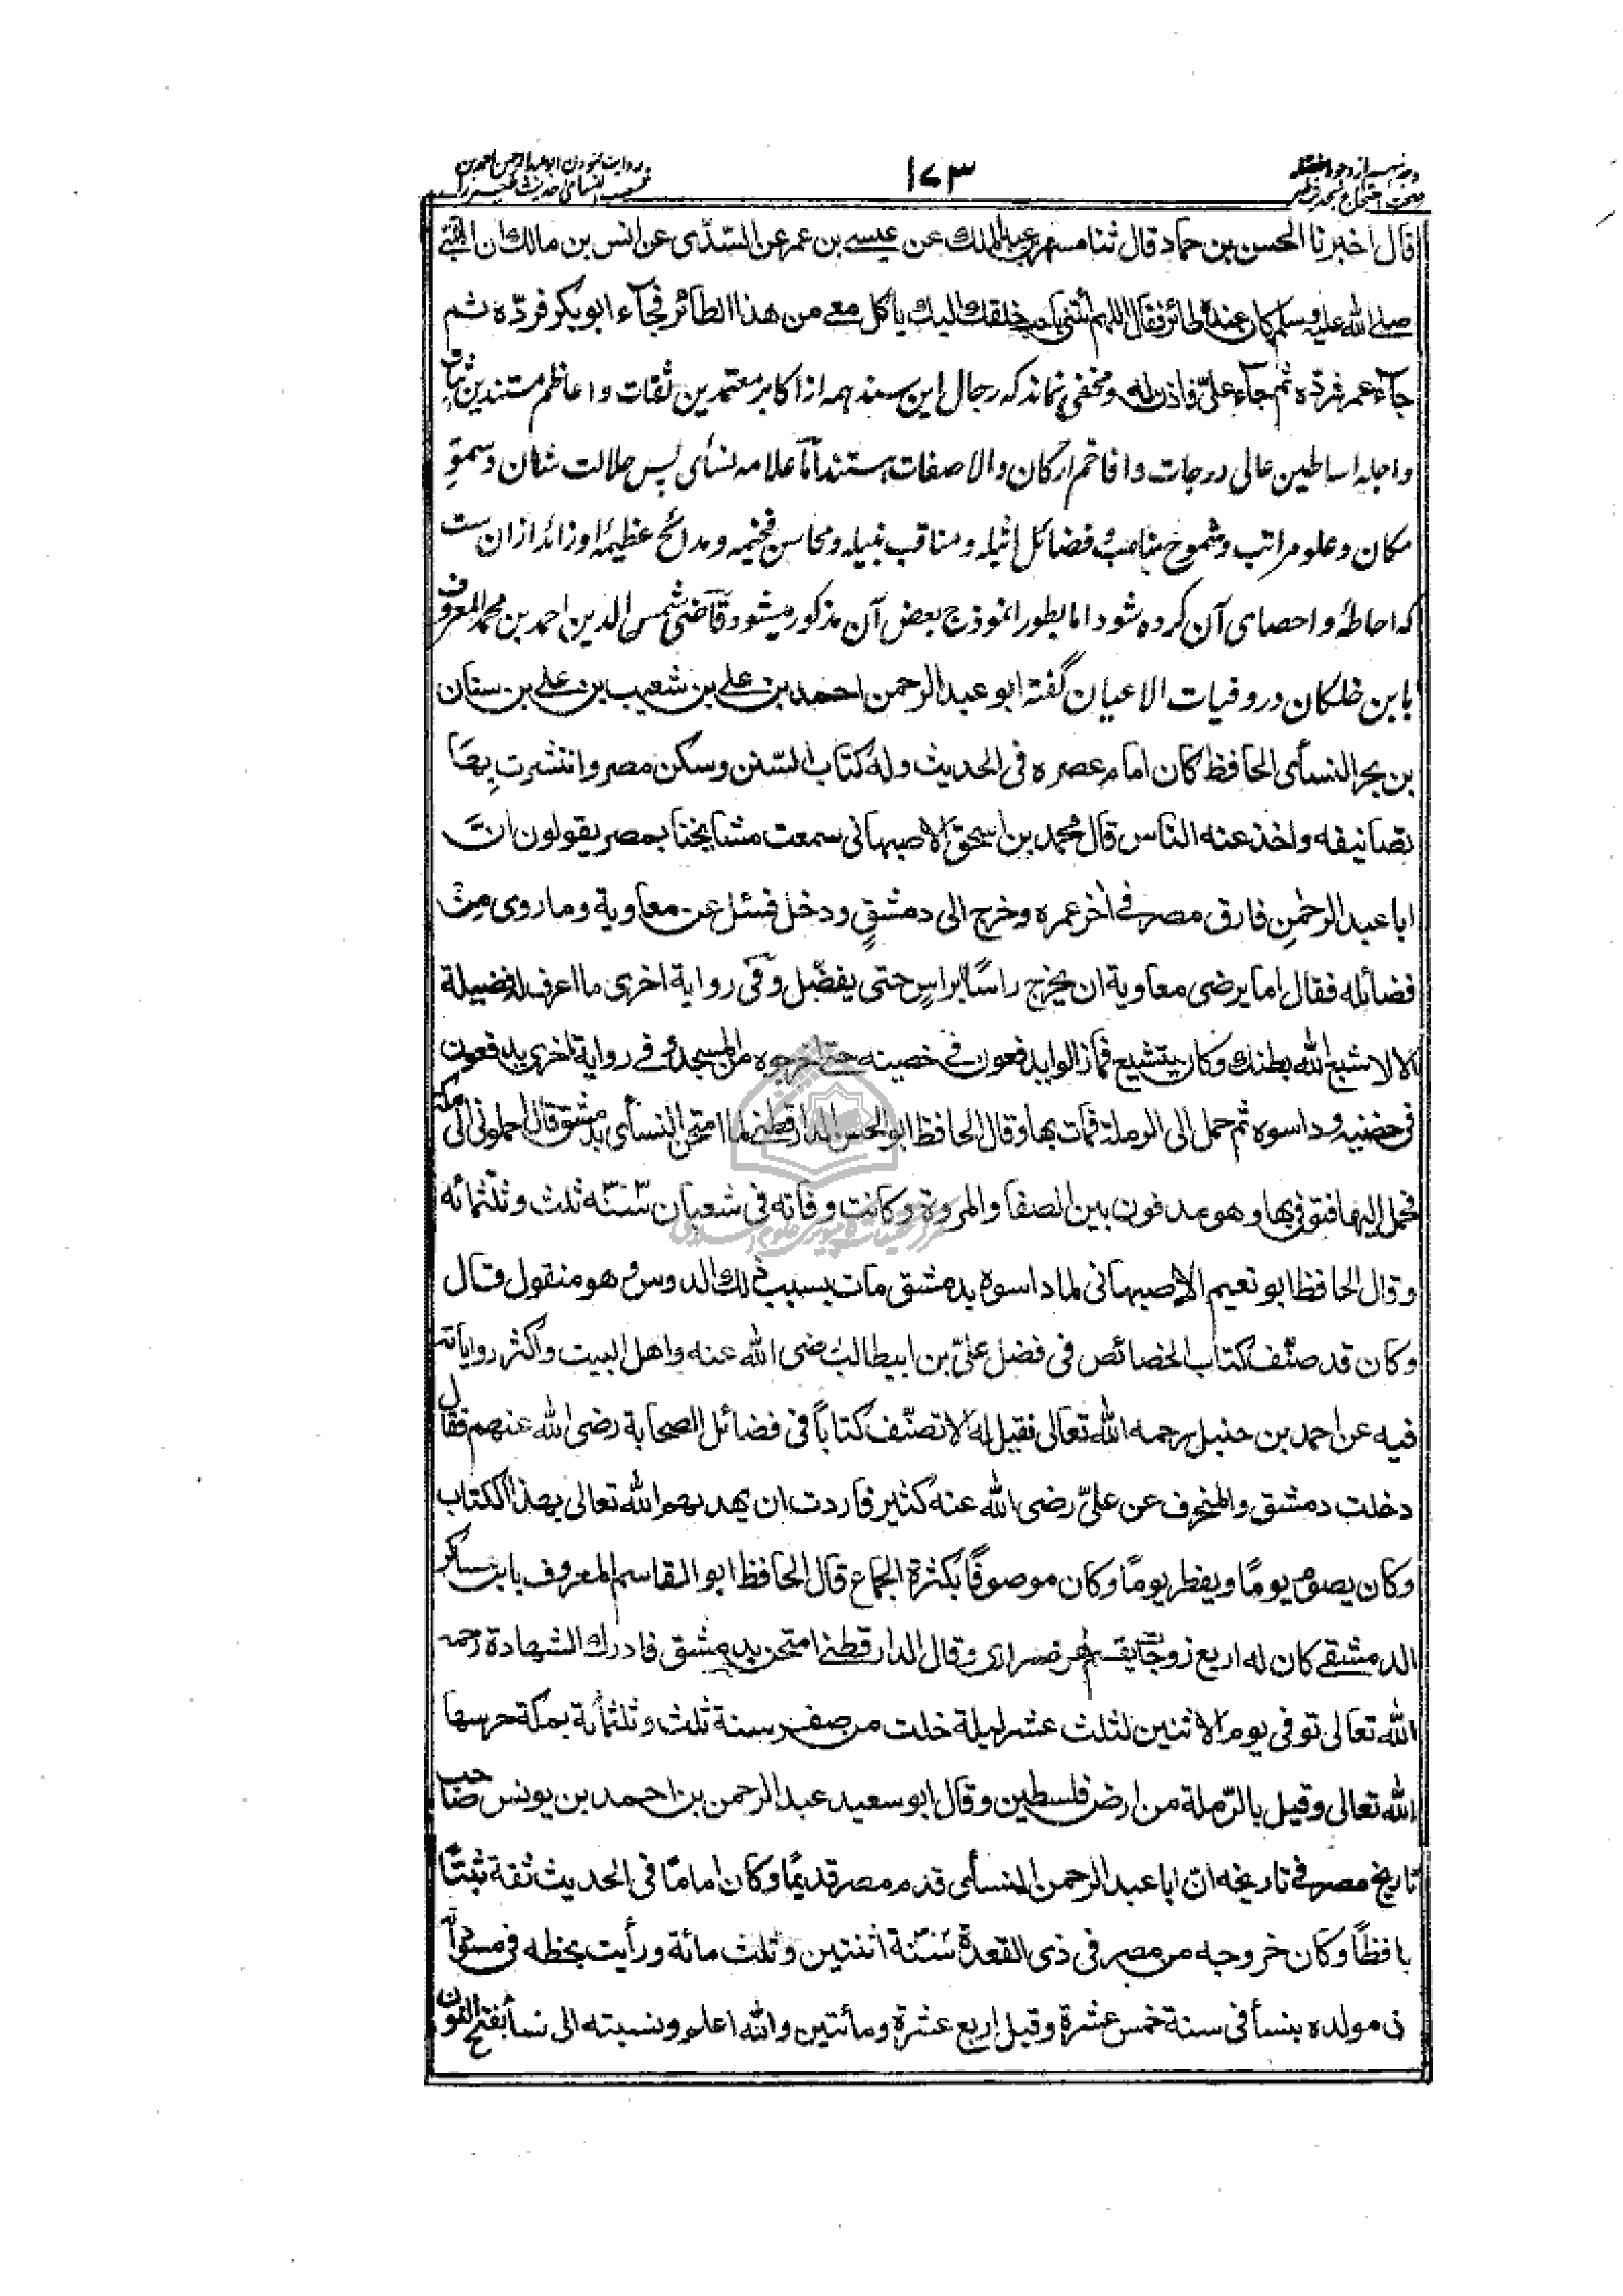 ۱۷۳
روایت نمودن ابو عبدالرحمن احمد بن
شعیب النسائی حدیث طیر را
قال اخبرنا الحسن بن حماد قال ثنا مسهر بن عبد الملك عن عیسے بن عمر عن السّدّی عن انس بن مالك ان النبی
صلے الله علیه وسلم کان عنده طائر فقال اللهم ائتنی باحب خلقك الیك یاکل معے من هذا الطائر فجآء ابو بکر فردّه ثم
جآء عمر فردّه ثم جآء علیّ فاذن له ومخفی نماند که رجال این سند همه از اکابر معتمدین ثقات واعاظم مستندین اثبات
واجله اساطین عالی درجات وافاخم ارکان والا صفات هستند اما علامه نسائی پس جلالت شان وسموّ
مکان وعلو مراتب وشموخ مناصب وفضائل اثیله ومناقب نبیله ومحاسن فخیمه ومدائح عظیمهٔ او زائد ازان ست
که احاطه واحصای آن کرده شود اما بطور انموذج بعض آن مذکور میشود قاضی شمس الدین احمد بن محمد المعروف
بابن خلکان در وفیات الاعیان گفته ابو عبد الرحمن احمد بن علے بن شعیب بن علے بن سنان
بن بحر النسأی الحافظ کان امام عصره فی الحدیث وله کتاب السّنن وسکن مصر وانتشرت بها
تصانیفه واخذ عنه الناس قال محمد بن اسحق الاصبهانی سمعت مشایخنا بمصر یقولون انّ
ابا عبد الرحمن فارق مصر فے اٰخر عمره وخرج الی دمشق ودخل فسئل عن معاویة وما روی من
فضائله فقال اما یرضی معاویة ان یخرج راسًا براسٍ حتی یفضّل وفی روایة اخری ما اعرف له فضیلة
الا لا اشبع الله بطنك وکان یتشیع فما زالوا یدفعون فے خصیته حتے اخرجوه من المسجد وفے روایة اخری یدفعون
فی خصییه وداسوه ثم حمل الی الرملة فمات بها وقال الحافظ ابو الحسن الدارقطنے لما امتحن النسأی بدمشق قال احملونی الی مکة
فحمل الیها فتوفی بها وهو مدفون بین الصفا والمروة وکانت وفاته فی شعبان سنة ثلث وثلثمائه
وقال الحافظ ابو نعیم الاصبهانی لما داسوه بدمشق مات بسبب ذلك الدوس وهو منقول قال
وکان قد صنّف کتاب الخصائص فی فضل علیّ بن ابیطالب رضی الله عنه واهل البیت واکثر روایاته
فیه عن احمد بن حنبل رحمه الله تعالی فقیل له الا تصنّف کتاباً فی فضائل الصحابة رضی الله عنهم فقال
دخلت دمشق والمنحرف عن علیّ رضی الله عنه کثیر فاردت ان یهدیهم الله تعالی بهذا الکتاب
وکان یصوم یومًا ویفطر یومًا وکان موصوفًا بکثرة الجماع قال الحافظ ابو القاسم المعروف بابن عساکر
الدمشقے کان له اربع زوجات یقسم لهن وسراری وقال الدارقطنے امتحن بدمشق فادرك الشهادة رحمه
الله تعالی توفی یوم الاثنین لثلث عشر لیلة خلت من صفر سنة ثلث وثلثمأیة بمکة حرسها
الله تعالی وقیل بالرّملة من ارض فلسطین وقال ابو سعید عبد الرحمن بن احمد بن یونس صاحب
تاریخ مصر فے تاریخه انّ ابا عبد الرحمن النسأی قدم مصر قدیمًا وکان امامًا فی الحدیث ثقة ثبتًا
حافظًا وکان خروجه من مصر فی ذی القعدة سنة اثنتین وثلث مائة ورأیت بخطه فی مسوداته
ان مولده بنسأ فی سنة خمس عشرة وقیل اربع عشرة ومائتین والله اعلم ونسبته الی نسأ بفتح النون